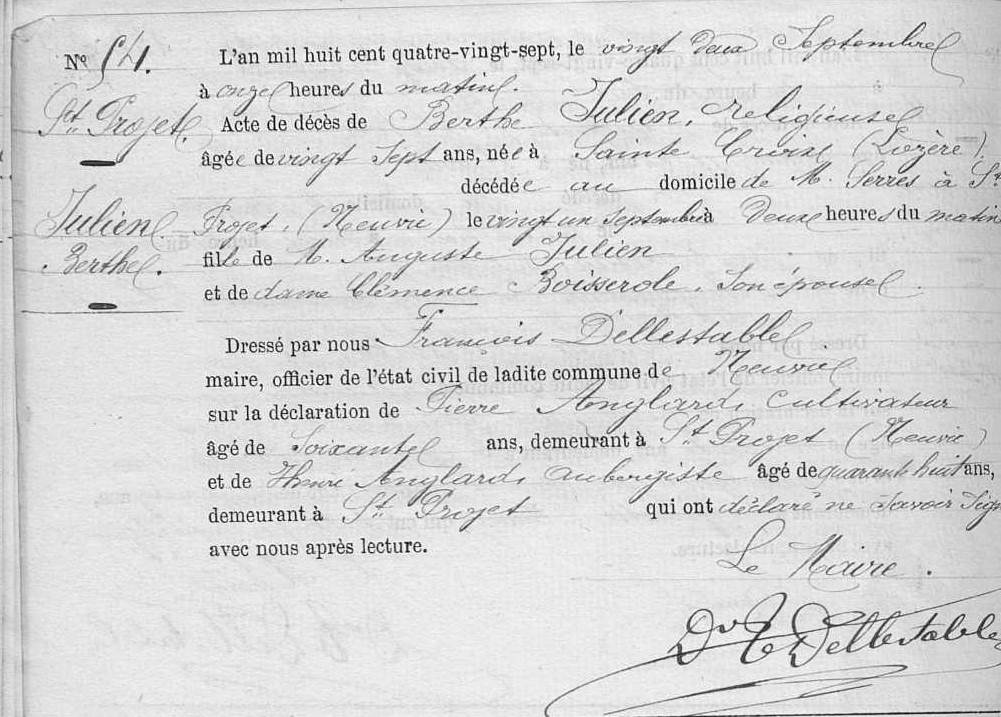 N° 54.
St Projet
Julien
Berthe.
L'an mil huit cent quatre-vingt-sept, le vingt deux Septembre
à onze heures du matin.
Acte de décès de Berthe Julien, religieuse
âgée de vingt Sept ans, née à Sainte Croix (Lozère)
décédée au domicile de M. Serres à St
Projet, (Neuvic) le vingt un septembre à deux heures du matin
fille de M. Auguste Julien
et de dame Clémence Boisserole, Son épouse.
Dressé par nous François Dellestable
maire, officier de l'état civil de ladite commune de Neuvic
sur la déclaration de Pierre Anglard, Cultivateur
âgé de Soixante ans, demeurant à St Projet (Neuvic)
et de Henri Anglard, aubergiste âgé de quarante huit ans,
demeurant à St Projet qui ont déclaré ne Savoir Sign
avec nous après lecture.
Le Maire.
Dr F Dellestable